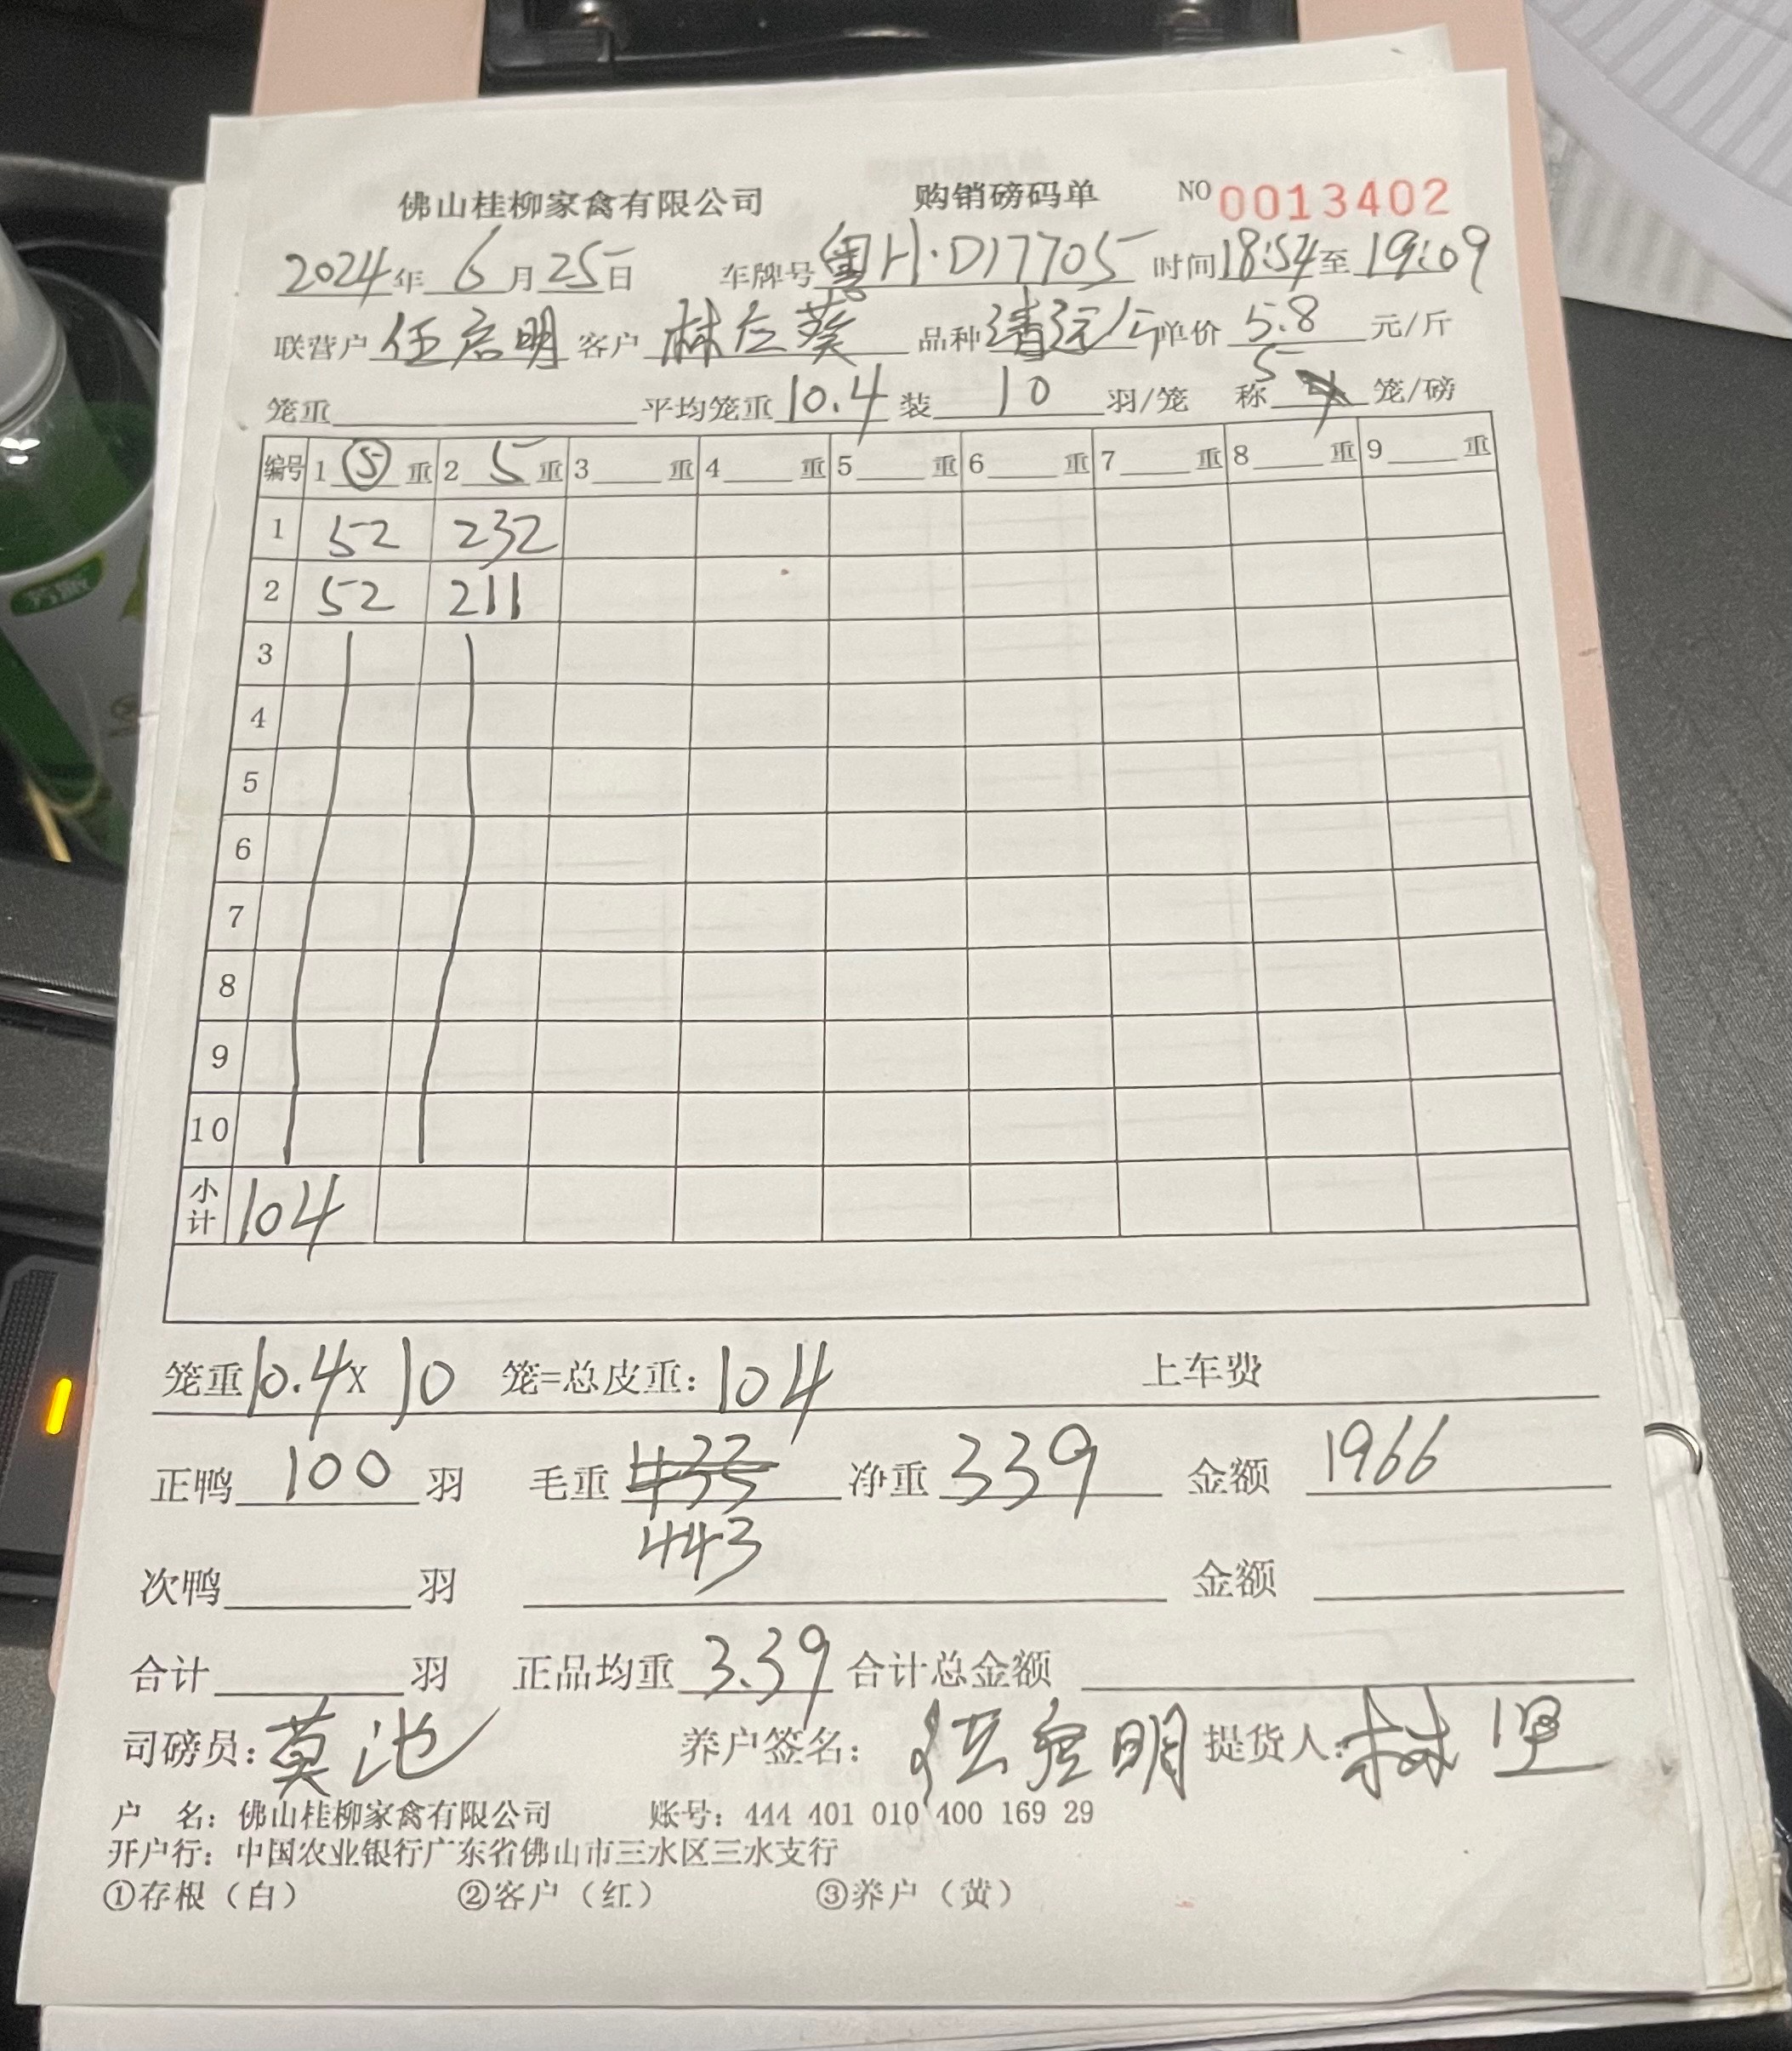 佛山桂柳家禽有限公司 购销磅码单 NO 0013402
2024年 6月25日 车牌号粤H·D17705 时间18:54至19:09
联营户 伍启明 客户 林左葵 品种 清远 单价 5.8 元/斤
笼重 平均笼重10.4 装 10 羽/笼 称 5 笼/磅
编号 1 ⑤ 重 2 5 重 3 重 4 重 5 重 6 重 7 重 8 重 9 重
1 52 232
2 52 211
3
4
5
6
7
8
9
10
小计 104
笼重10.4X 10 笼=总皮重：104 上车费
正鸭 100 羽 毛重 433 净重 339 金额 1966
443
次鸭 羽 金额
合计 羽 正品均重 3.39 合计总金额
司磅员：莫池 养户签名：伍启明 提货人：林
户 名：佛山桂柳家禽有限公司 账号：444 401 010 400 169 29
开户行：中国农业银行广东省佛山市三水区三水支行
①存根（白） ②客户（红） ③养户（黄）